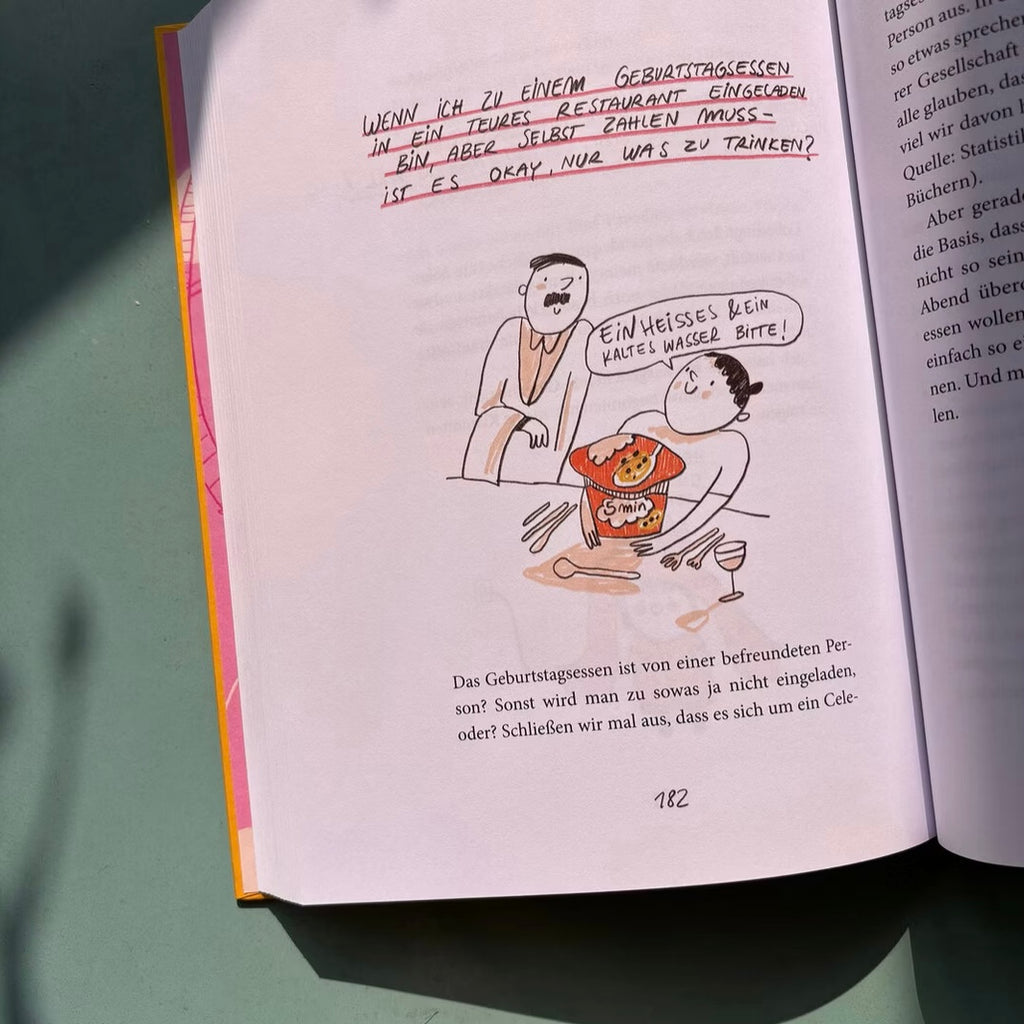 WENN ICH ZU EINEM GEBURTSTAGSESSEN
IN EIN TEURES RESTAURANT EINGELADEN
BIN, ABER SELBST ZAHLEN MUSS-
IST ES OKAY, NUR WAS ZU TRINKEN?
EIN HEISSES & EIN
KALTES WASSER BITTE!
5 min
Das Geburtstagsessen ist von einer befreundeten Per-
son? Sonst wird man zu sowas ja nicht eingeladen,
oder? Schließen wir mal aus, dass es sich um ein Cele-
182
Person aus.
so etwas
rer Gesellschaft
alle glauben,
viel wir davon
Quelle:
Büchern).
Aber
die Basis, dass
nicht so sein
Abend
essen
einfach so
nen. Und
len.